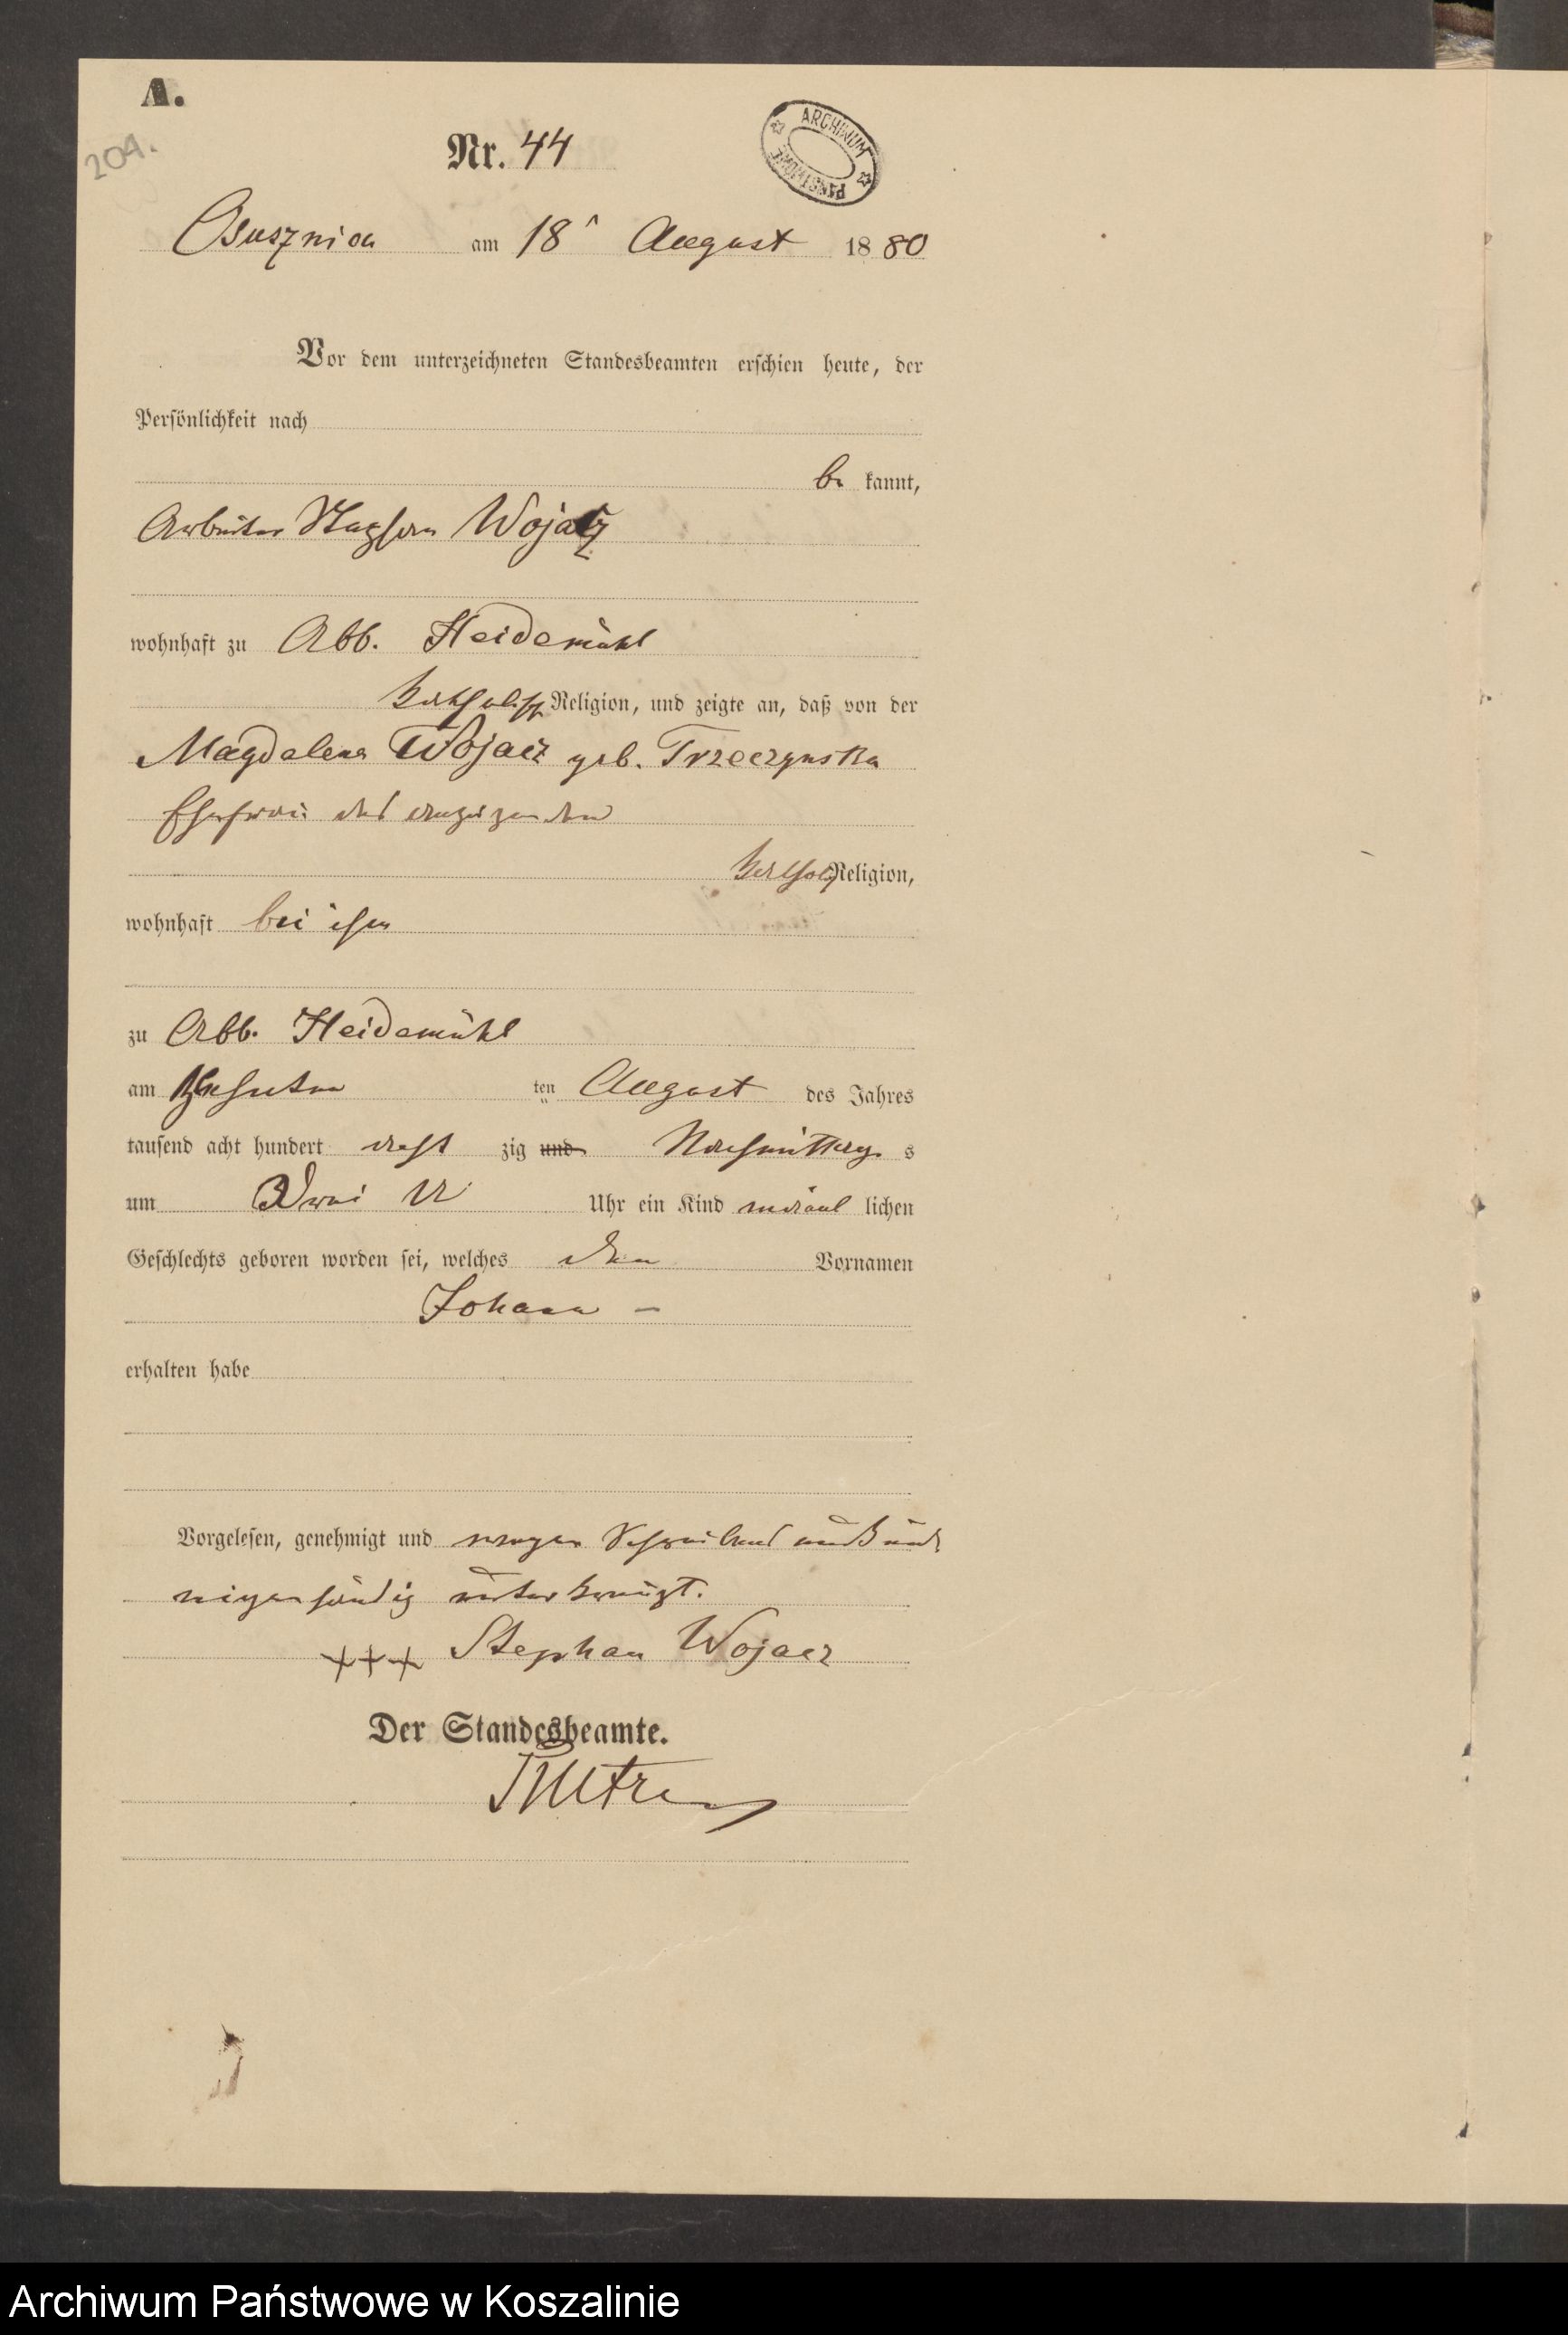 A.
204.
Nr. 44
ARCHIWUM PAŃSTWOWE
Osusznica am 18t August 1880
Vor dem unterzeichneten Standesbeamten erschien heute, der
Persönlichkeit nach
be kannt,
Arbeiter Stephan Wojacz
wohnhaft zu Abb. Heidemühl
katholisch Religion, und zeigte an, daß von der
Magdalena Wojacz geb. Trzeczynska
Ehefrau des Anzeigenden
kathol. Religion,
wohnhaft bei ihm
zu Abb. Heidemühl
am ten August des Jahres
tausend acht hundert acht zig und Nachmittag s
um Zwei Uhr ein Kind männ lichen
Geschlechts geboren worden sei, welches den Vornamen
Johann –
erhalten habe
Vorgelesen, genehmigt und wegen Schreibens
eigenhändig unterkreuzt.
+++ Stephan Wojacz
Der Standesbeamte.
Archiwum Państwowe w Koszalinie